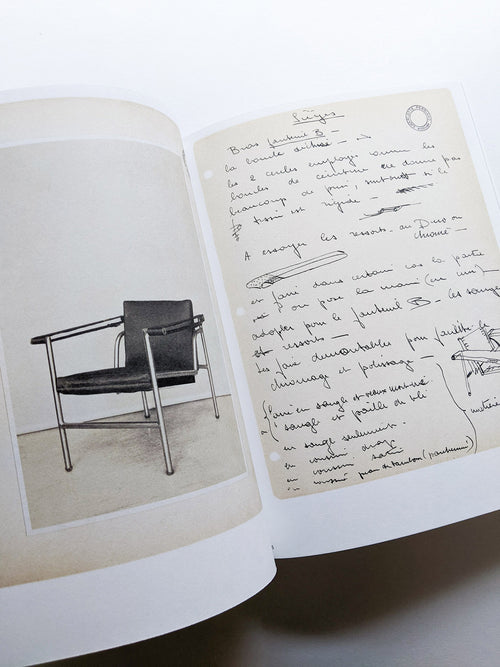 Sièges
Bras fauteuil B —
la boucle
les 2 cercles employés comme les
boucles de ceinture ne donne pas
beaucoup de prise, surtout si le
tissu est rigide —
A essayer les ressorts au Duco ou
chromé —
et faire dans certain cas la partie
où on pose la main (en cuir)
adopter pour le fauteuil B — les sangles
et ressorts —
les faire démontables pour faciliter le
chromage et polissage —
faire en sangle et
sangle et paille de blé
en sangle seulement.
en coussin drap
en coussin satin
en coussin peau de tambour (parchemin)